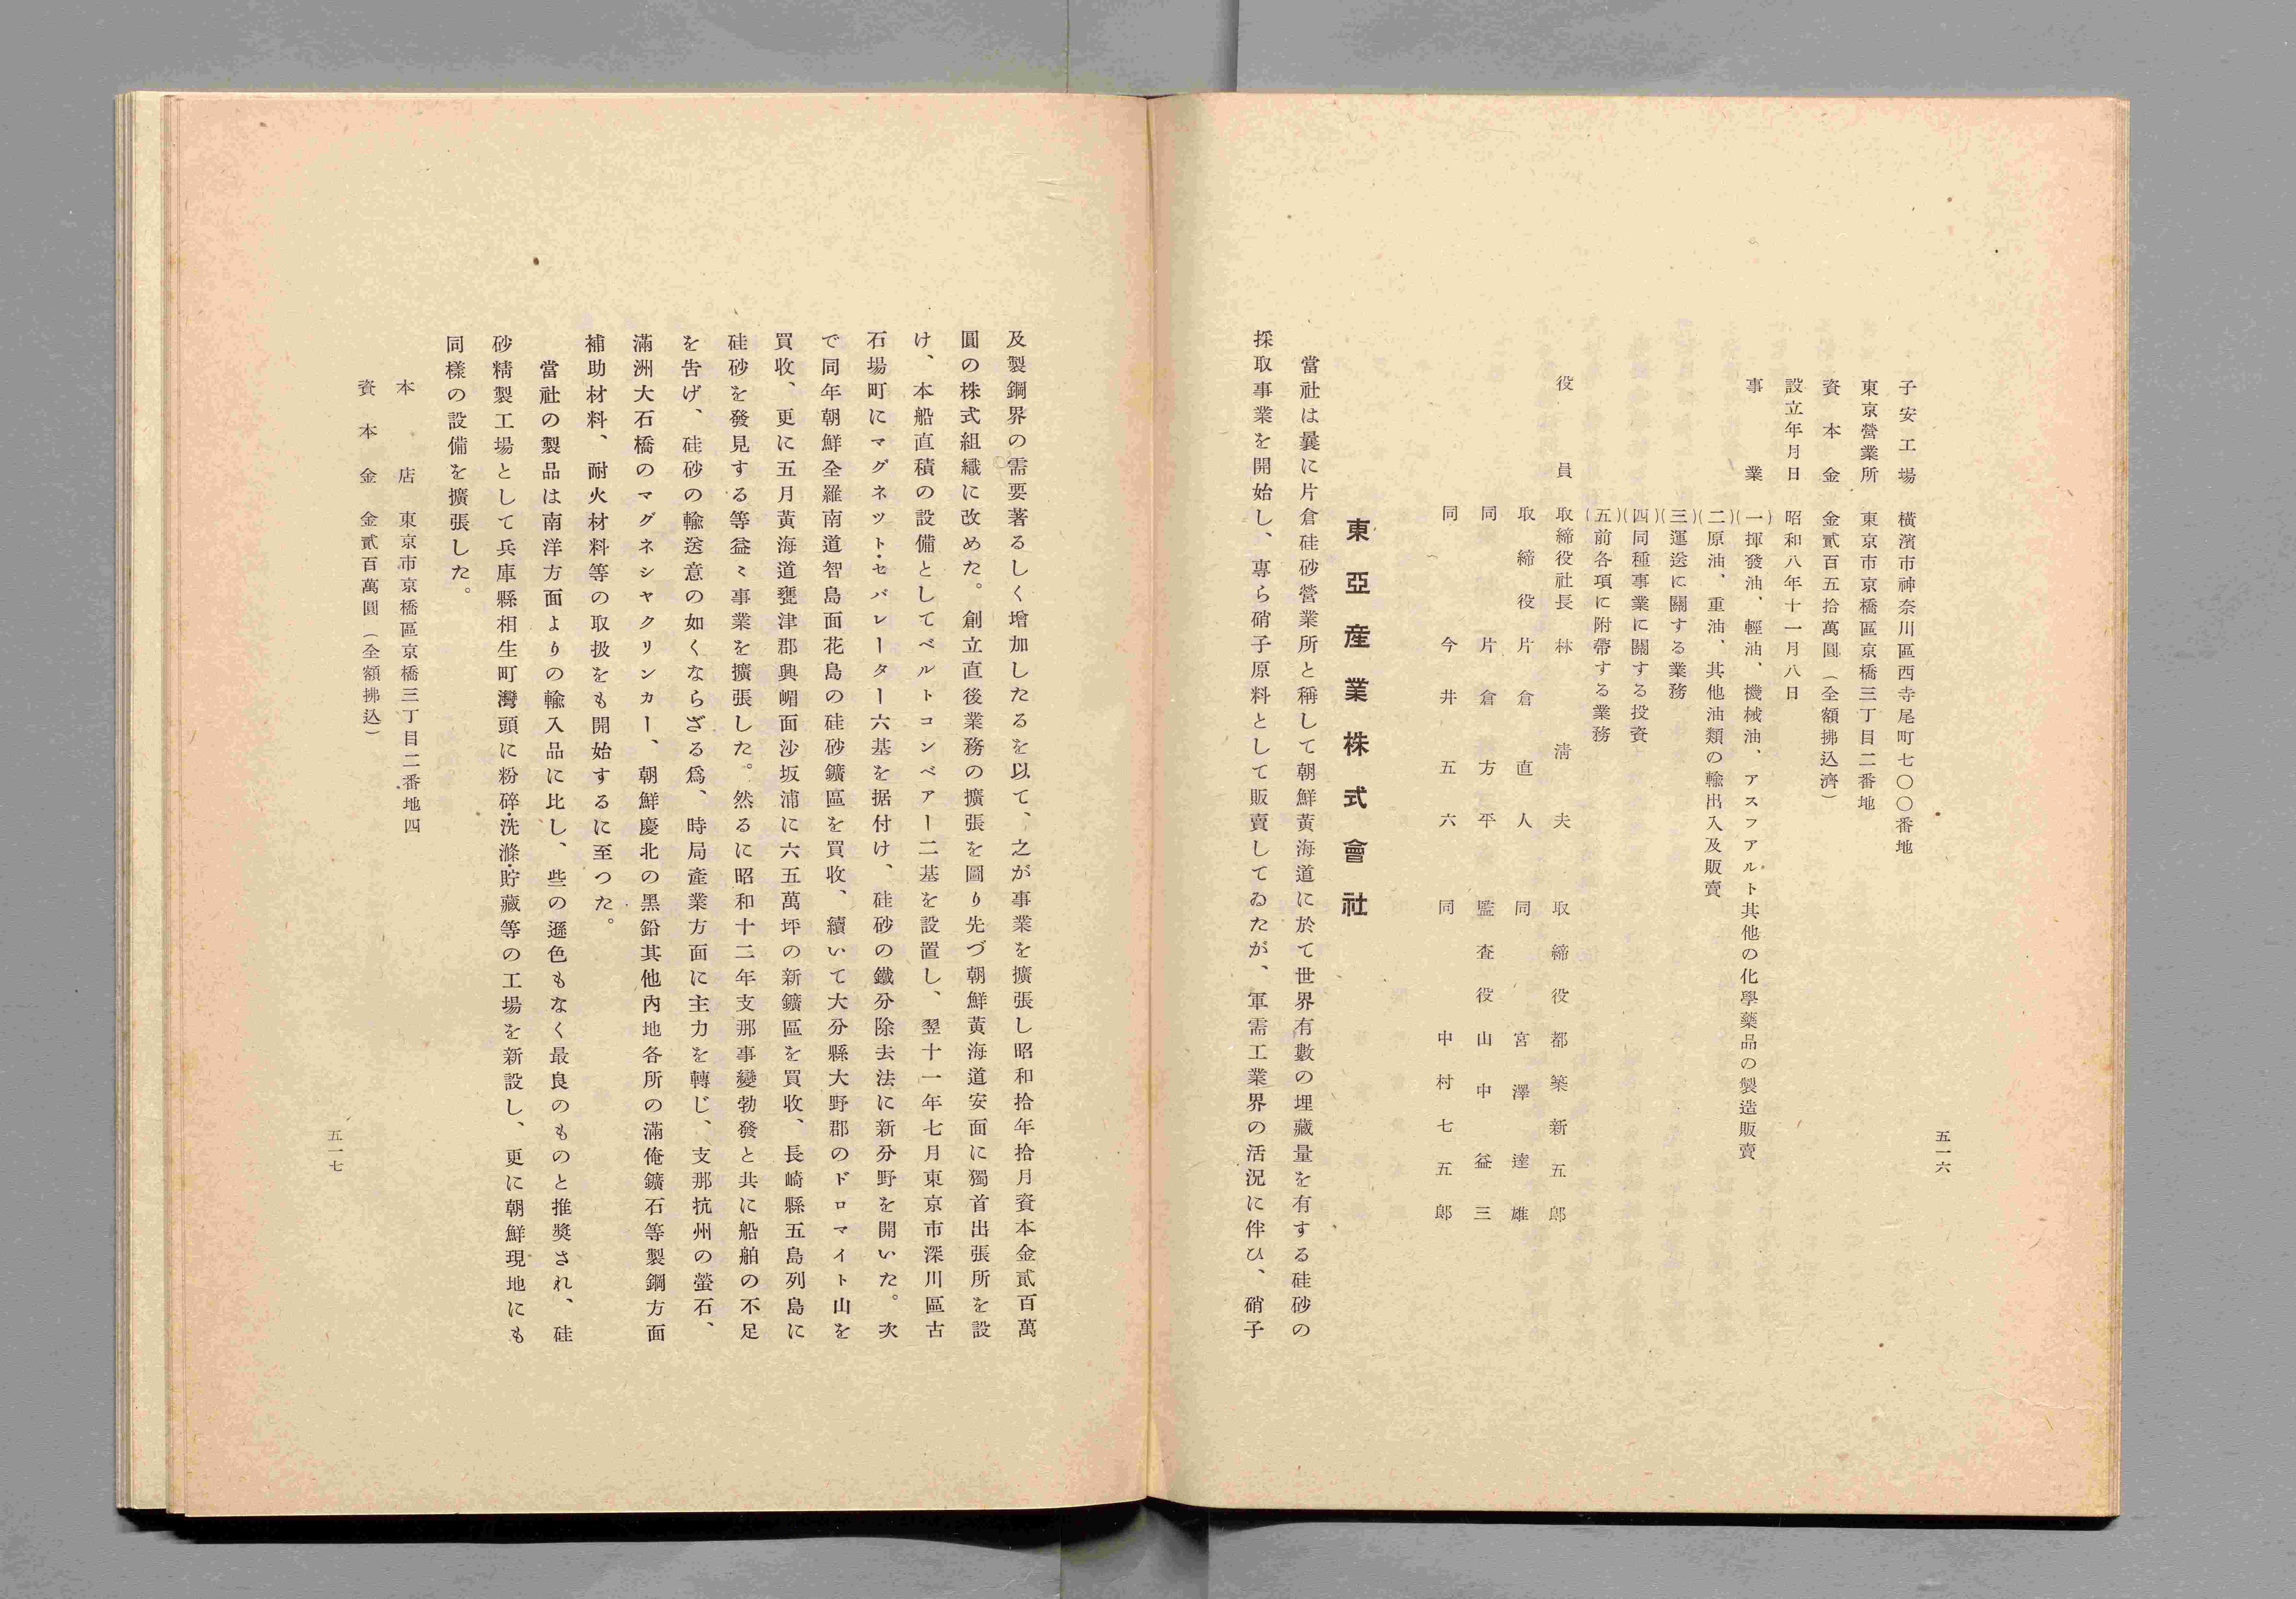 五一六
子安工場　橫濱市神奈川區西寺尾町七〇〇番地
東京營業所　東京市京橋區京橋三丁目二番地
資本金　金貳百五拾萬圓（全額拂込濟）
設立年月日　昭和八年十一月八日
事業　（一）揮發油、輕油、機械油、アスフアルト其他の化學藥品の製造販賣
（二）原油、重油、其他油類の輸出入及販賣
（三）運送に關する業務
（四）同種事業に關する投資
（五）前各項に附帶する業務
役員　取締役社長　林淸夫　取締役　都築新五郎
取締役　片倉直人　同　宮澤達雄
同　片倉方平　監査役　山中益三
同　今井五六　同　中村七五郎
東亞産業株式會社
當社は曩に片倉硅砂營業所と稱して朝鮮黃海道に於て世界有數の埋藏量を有する硅砂の
採取事業を開始し、專ら硝子原料として販賣してゐたが、軍需工業界の活況に伴ひ、硝子
及製鋼界の需要著るしく增加したるを以て、之が事業を擴張し昭和拾年拾月資本金貳百萬
圓の株式組織に改めた。創立直後業務の擴張を圖り先づ朝鮮黃海道安面に獨首出張所を設
け、本船直積の設備としてベルトコンベアー二基を設置し、翌十一年七月東京市深川區古
石場町にマグネツト・セバレーター六基を据付け、硅砂の鐵分除去法に新分野を開いた。次
で同年朝鮮全羅南道智島面花島の硅砂鑛區を買收、續いて大分縣大野郡のドロマイト山を
買收、更に五月黃海道甕津郡興嵋面沙坂浦に六五萬坪の新鑛區を買收、長崎縣五島列島に
硅砂を發見する等益〻事業を擴張した。然るに昭和十二年支那事變勃發と共に船舶の不足
を告げ、硅砂の輸送意の如くならざる爲、時局產業方面に主力を轉じ、支那抗州の螢石、
滿洲大石橋のマグネシヤクリンカー、朝鮮慶北の黑鉛其他內地各所の滿俺鑛石等製鋼方面
補助材料、耐火材料等の取扱をも開始するに至つた。
當社の製品は南洋方面よりの輸入品に比し、些の遜色もなく最良のものと推奬され、硅
砂精製工場として兵庫縣相生町灣頭に粉碎・洗滌・貯藏等の工場を新設し、更に朝鮮現地にも
同樣の設備を擴張した。
本店　東京市京橋區京橋三丁目二番地四
資本金　金貳百萬圓（全額拂込）
五一七